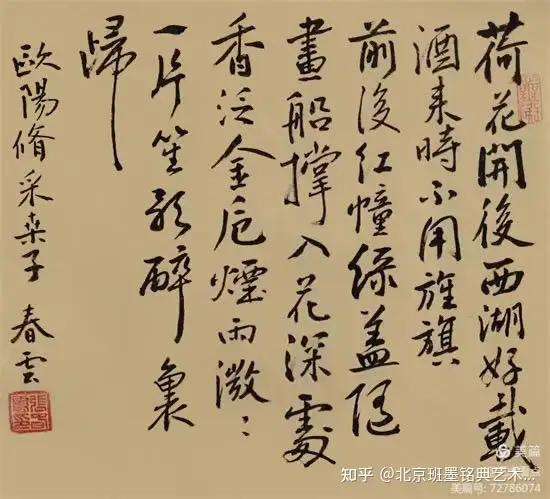 荷花開後西湖好載
酒来時不用旌旗
前後红幢綠盖随
畫船撑入花深處
香泛金卮煙雨微〻
一片笙歌醉裏
歸
歐陽脩采桑子 春雲
美篇
知乎 @北京班墨铭典艺术...
美篇号: 72786074